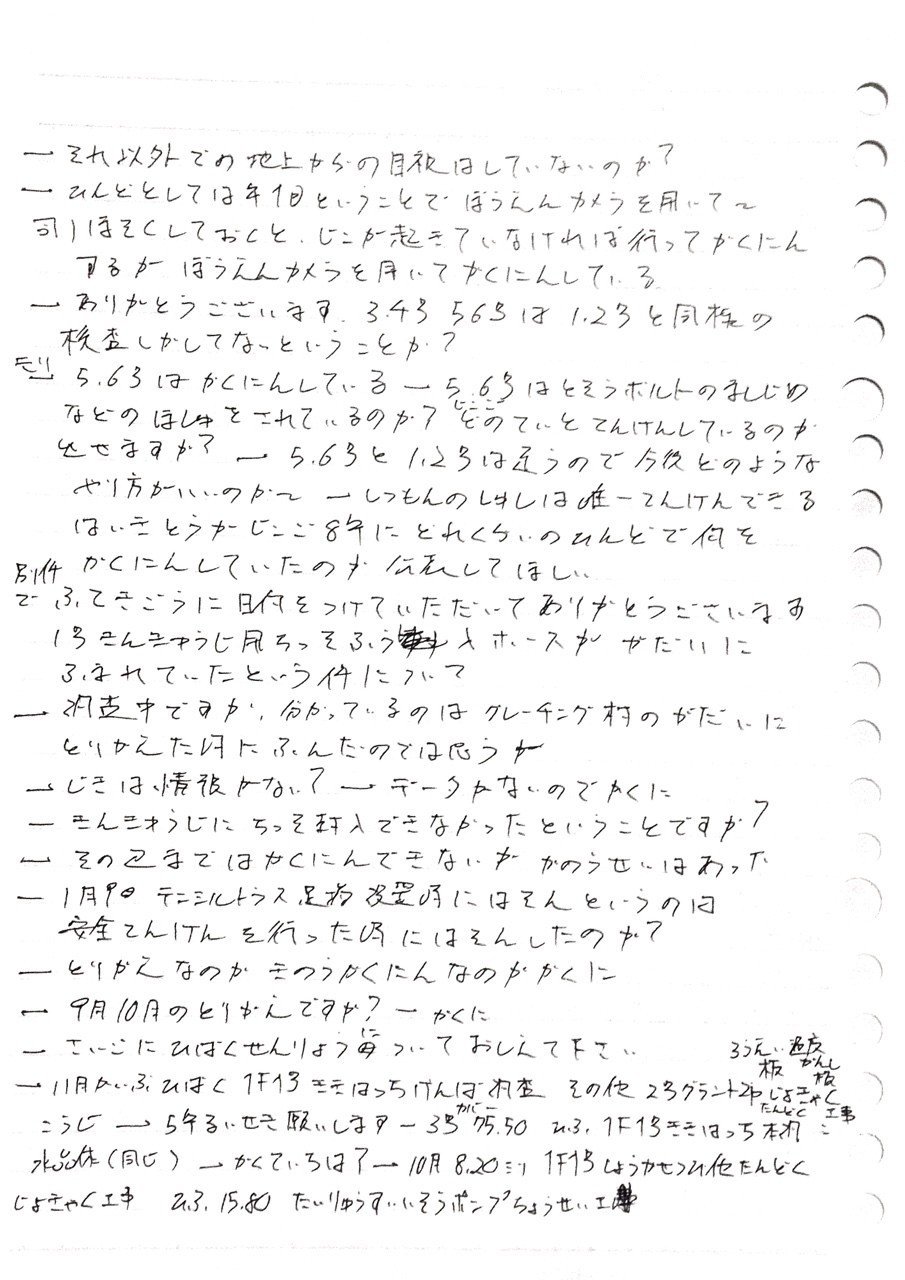 ー それ以外での地上からの目視はしていないのか？
ー ひんどとしては年1回ということで ぼうえんカメラを用いて〜
司）ほそくしておくと、じこが起きていなければ 行ってかくにん
するが ぼうえんカメラを用いてかくにんしている
ー ありがとうございます. 3.4号 5 6号は 1.2号と同様の
検査しかしてないということか？
ー 5.6号はかくにんしている ー 5.6号はとそうボルトのましじめ
などの ほしゅをされているのか？ どのていど てんけんしているのか
出せますか？ ー 5.6号と 1.2号は違うので 今後どのような
やり方がいいのか〜 ー しつもんのしゅしは唯一てんけんできる
はいきとうがじこご 8年に どれくらいのひんどで何を
かくにんしていたのか 公表してほしい
別件
で ふてきごうに 日付をつけていただいてありがとうございます
1号きんきゅうじ用ちっそふう入ホースが がだいに
ふまれていたという件について
ー 調査中ですが、分かっているのは グレーチング材の がだいに
とりかえた時に ふんだのでは 思うが
ー じきは 情報がない？ ー データがないので かくに
ー きんきゅうじに ちっそ封入できなかったということですか？
ー その辺まではかくにんできないが かのうせいはあった
ー 1月9日 テンシルトラス足場設置時にはそんというのは
安全てんけんを行った時にはそんしたのか？
ー とりかえなのか きのうかくにんなのかかくに
ー 9月10月のとりかえですか？ ー かくに
ー さいごに ひばくせんりょうについて おしえて下さい
ろうえい
板 かんし
板
ー 11月がいぶひばく 1F1号 ききはっちけんぱ 調査 その他 2号グランド じょきゃく
たんどく 工事
こうじ ー 5年るいせき願いします ー 3号 75.50 ひふ. 1F1号ききはっち
水晶体（同じ） ー かくていちは？ ー 10月 8.20ミリ 1F1号 しょうかせつび他たんどく
じょきゃく工事 ひふ. 15.80 たいりゅうすいそうポンプちょうせい工事